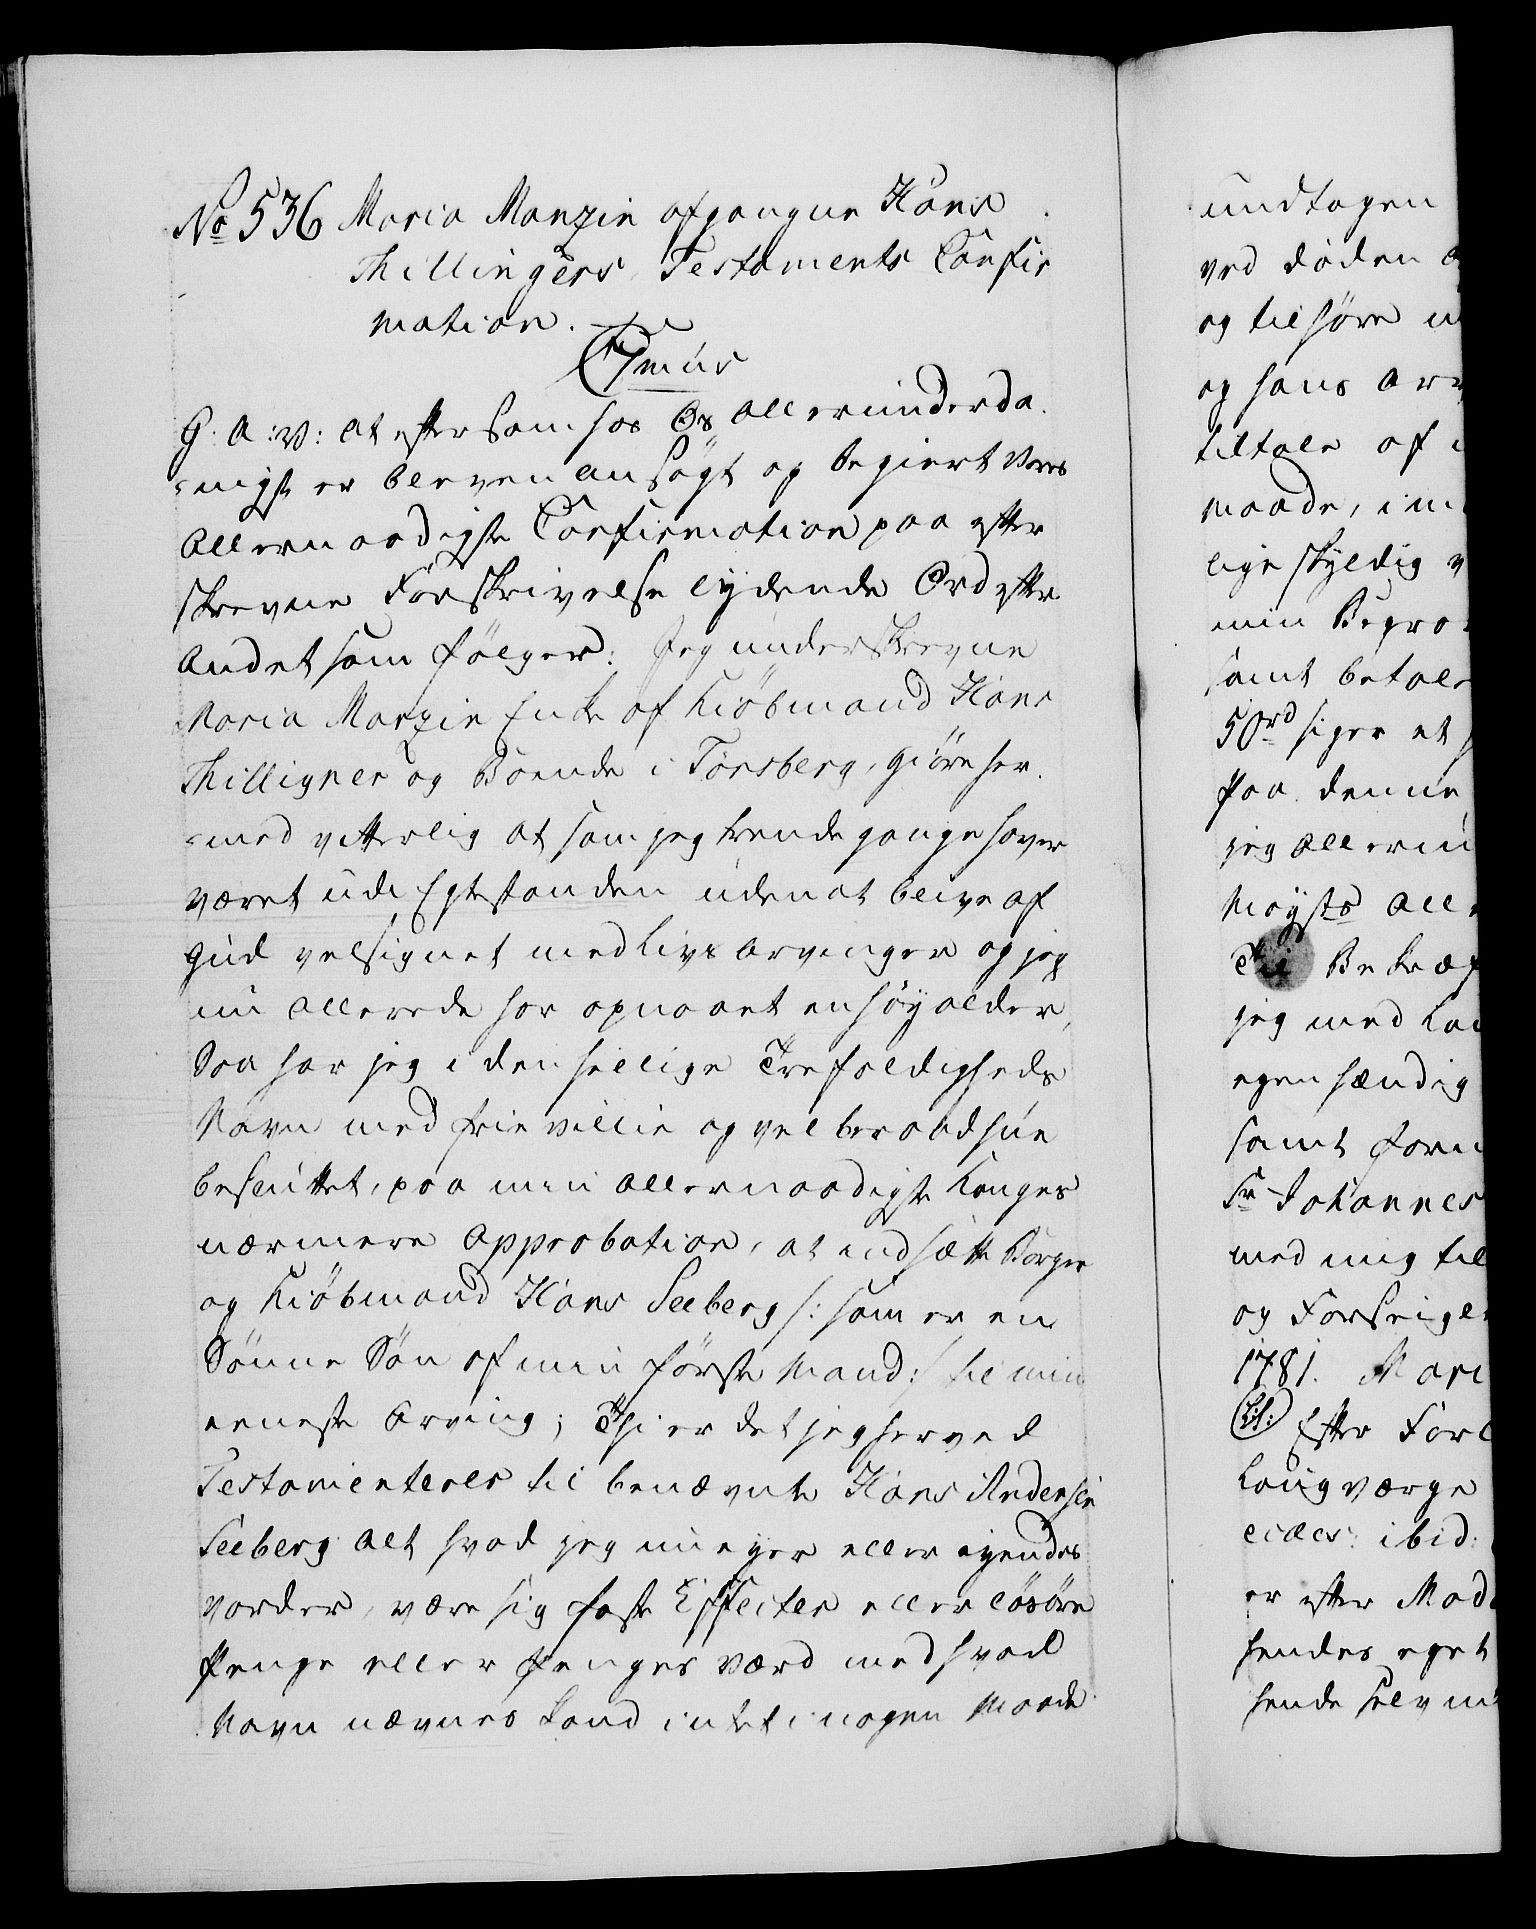 No 536 Maria Manzin afgangne Hans
Thillingers Testaments Confir
mation.
C7mus
G: A: V: at eftersom hos Os allerunderda-
-nigst er bleven ansøgt og begiert Vores
allernaadigste Confirmation paa efter
skrevne Forskrivelse lydende Ord efter
andet som følger: Jeg underskrevne
Maria Manzin Enke af Kiøbmand Hans
Thilligner og Boende i Tønsberg, giøre her-
-med vitterlig at som jeg trende gange haver
været udi Egtestanden uden at blive af
Gud velsignet med Livs Arvinger og jeg
nu allerede har opnaaet en høy alder,
Saa har jeg i den hellige Trefoldigheds
Navn med frie villie og vel beraad hue
besluttet, paa min allernaadigste Konges
nærmere Approbation, at indsætte Borger
og Kiøbmand Hans Seeberg /: som er en
Sønne Søn af min første Mand :/ til min
eneste Arving; Thi er det jeg herved
Testamenterer til benævnte Hans Andersen
Seeberg alt hvad jeg nu eyer eller eyendes
vorder, være sig faste Effecter eller løsøre
Penge eller Penges værd med hvad
Navn nævnes kand intet i nogen Maade
undtagen
ved døden
og tilhøre
og hans
tiltale af
maade,
lige skyldig
min
samt betale
50rd siger et
Paa denne
jeg
Maysts
Til
jeg med
egenhændig
samt
Sr Johannes
med mig til
og
1781.
L:S: Efter
Laugværge
ibid:
er efter
hendes eget
hende selv